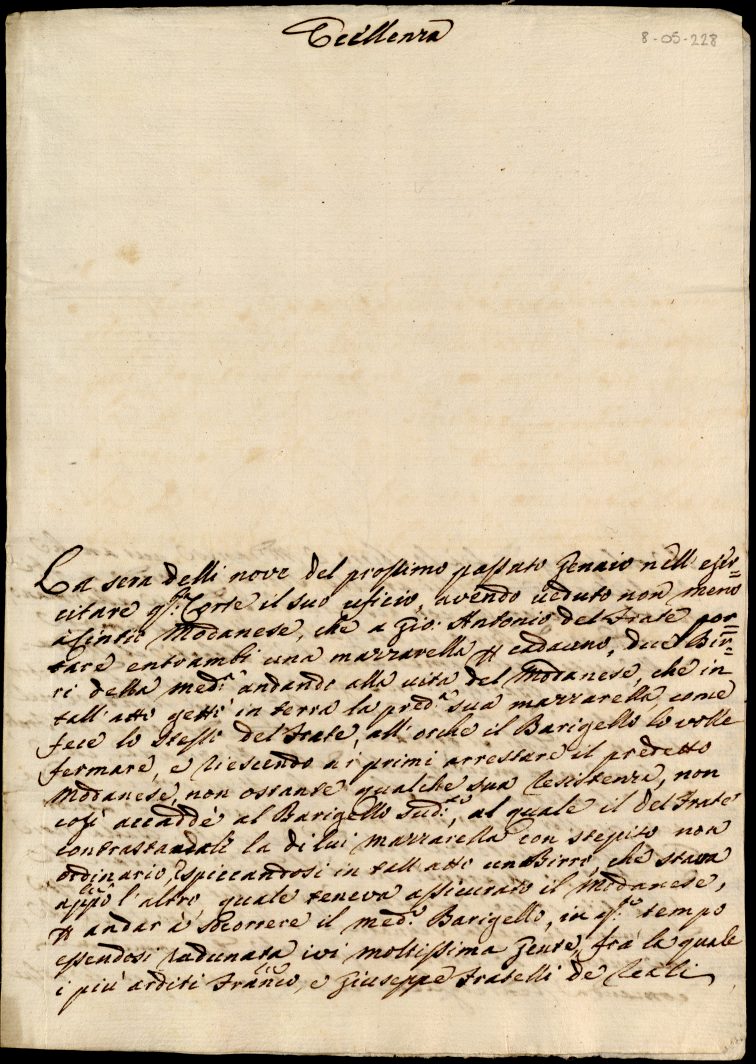 Eccellenza
8-05-228
La sera delli nove del prossimo passato Genaio nell eser=
citare q.ta Corte il suo uficio, avendo veduto non meno
a Cinto Modanese, che a Gio: Antonio del Frate por=
tare entrambi una mazzarella p cadauno, due Bir=
ri della med.a andando alla vita del Modanese, che in
tall' atto gettò in terra la pred.a sua mazzarella, come
fece lo stesso del Frate, all'orche il Barigello lo volle
fermare, e riescendo ai primi arrestare il predetto
Modanese, non ostante qualche sua resistenza, non
così accaddè al Barigello sud.to, al quale il del Frate
contrastandoli la di lui mazzarella con stepito non
ordinario, spiccandosi in tall' atto un Birro, che stava
app.o l'altro, quale teneva assicurato il Modanese,
p andar à socorrere il med.o Barigello, in q.to tempo
essendosi radunata ivi moltissima Gente, frà la quale
i più arditi Fran.co, e Giuseppe Fratelli de Reali